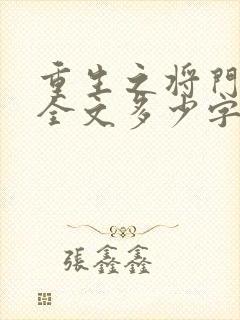 重生之将門
全文多少字
張鑫鑫